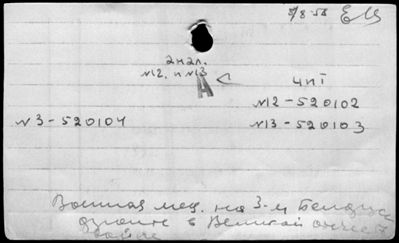 5/8-58
анал.
№2. и №3
Ч II
№2-520102
№3-520104
№3-520103
Военная мед. на 3-м Белорус
фронте в Великой отечест
войне